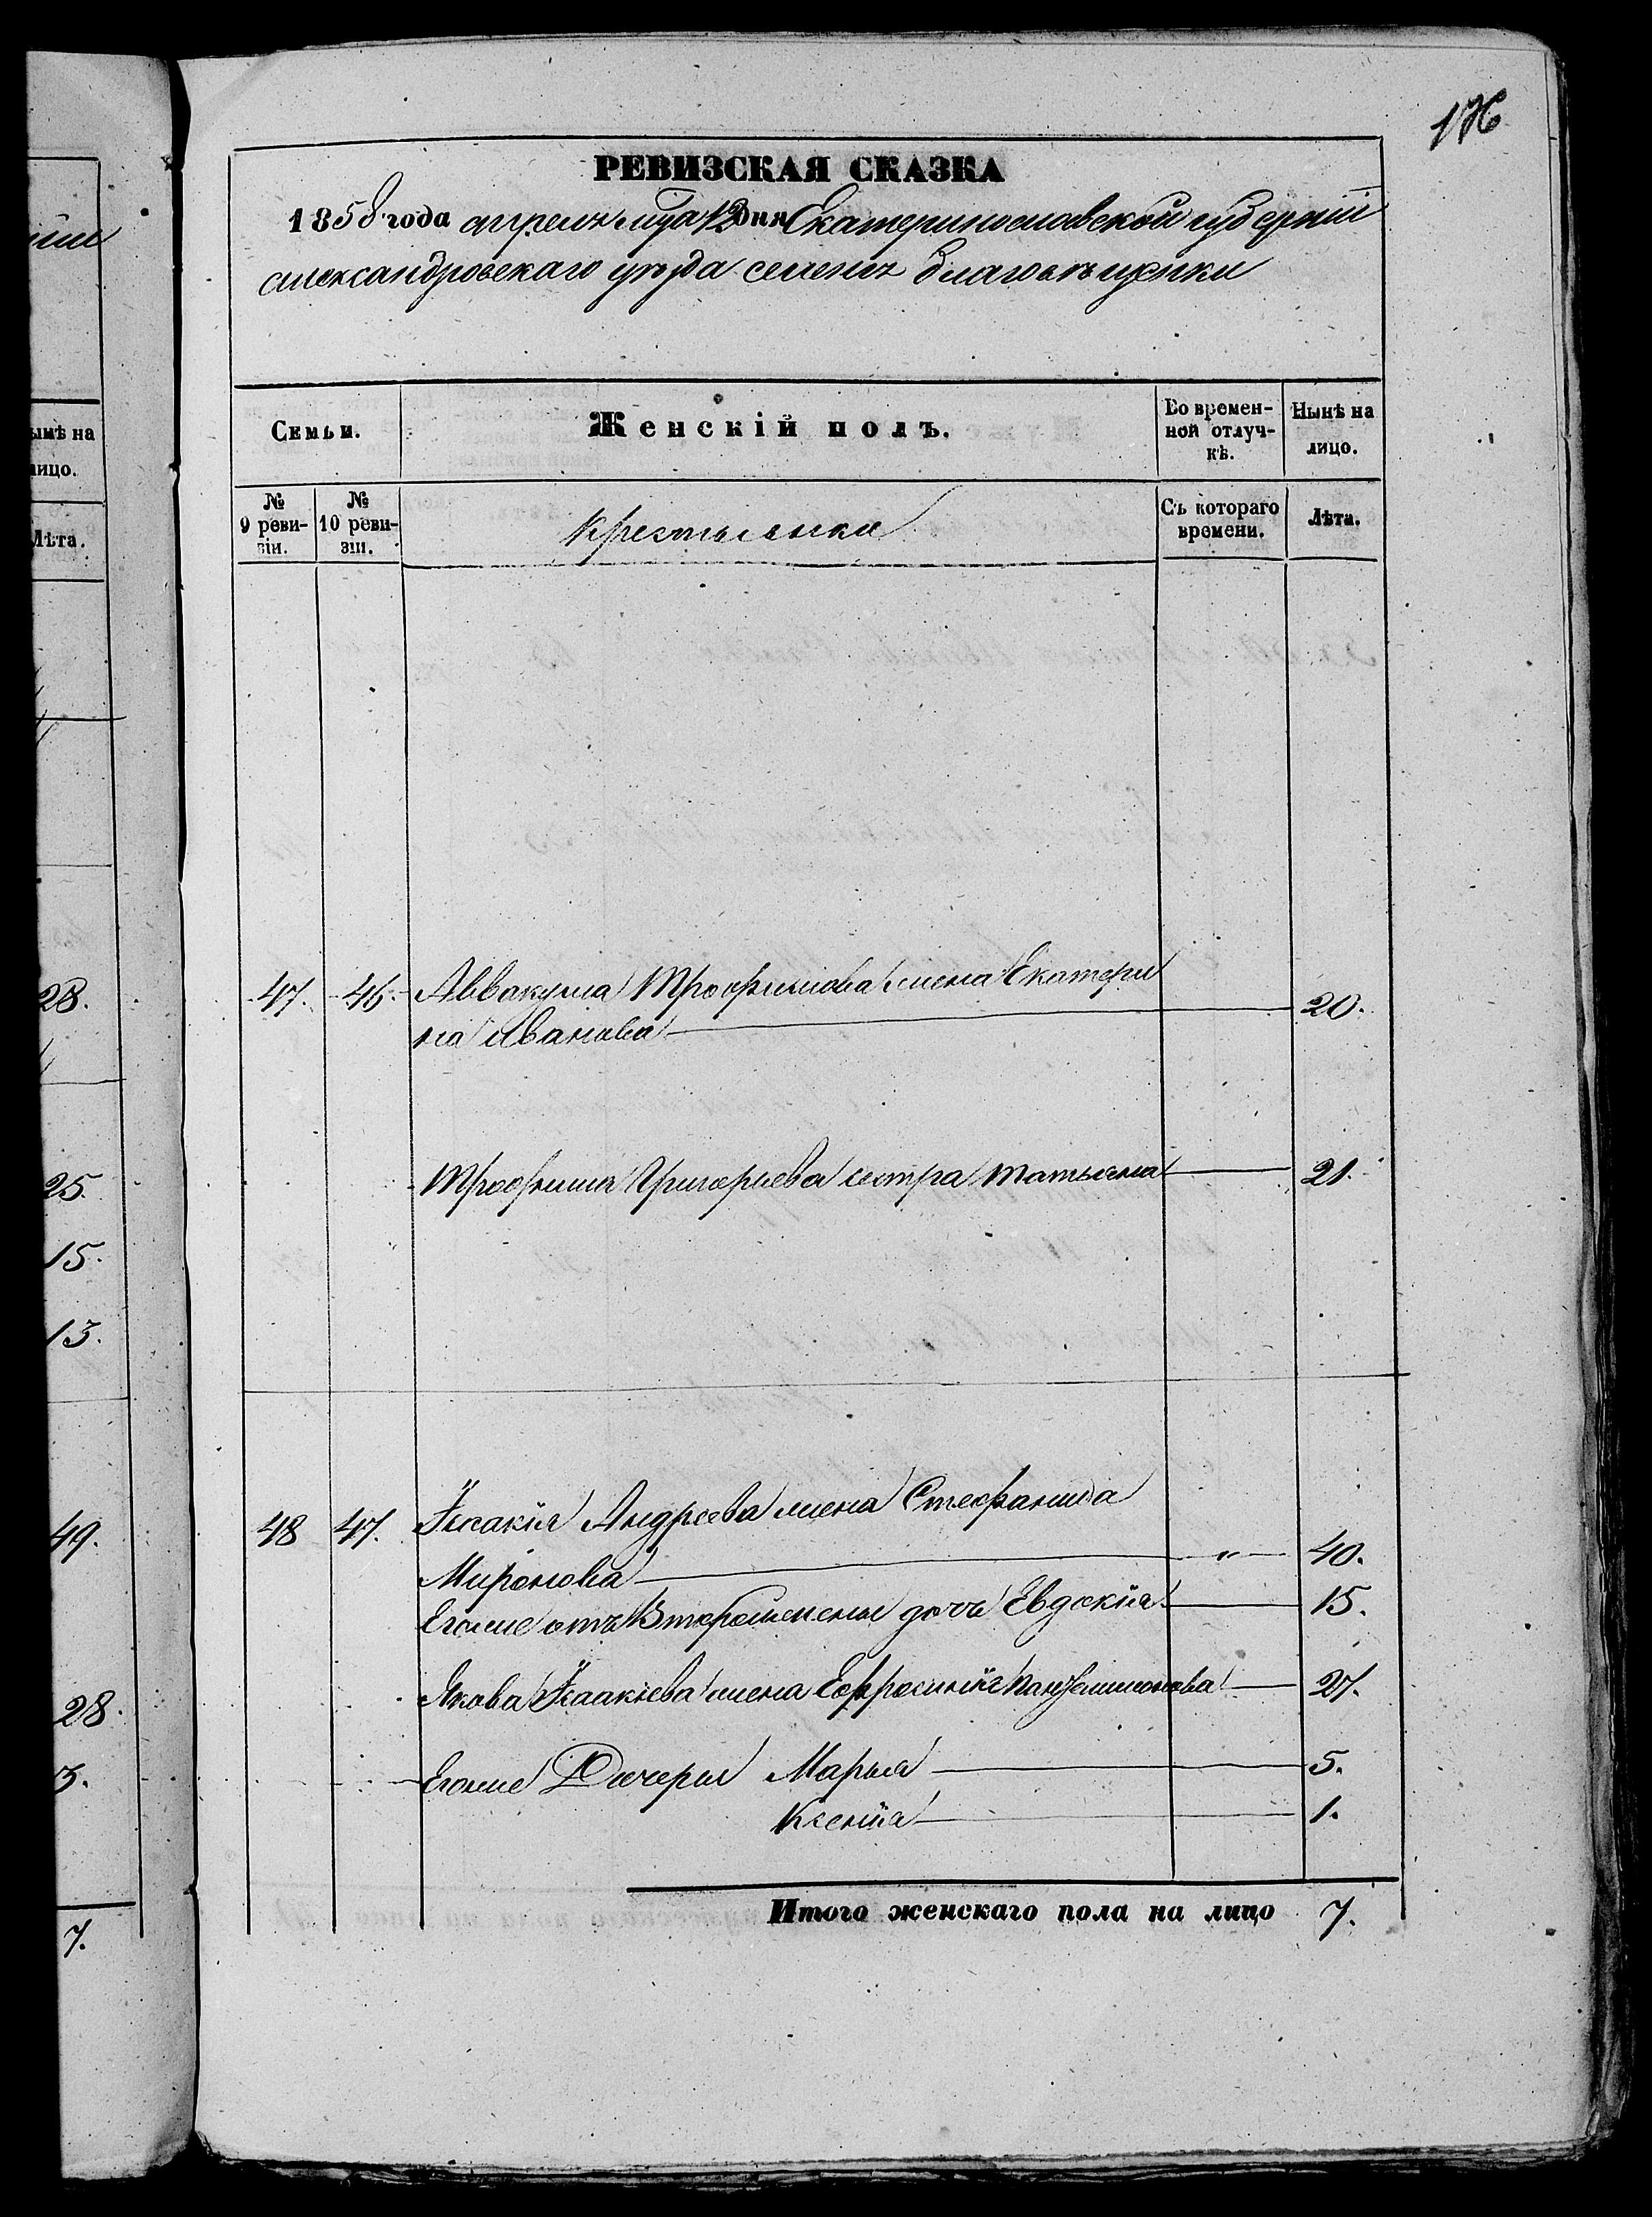 176
РЕВИЗСКАЯ СКАЗКА
1858 года апреля мца 12 дня Екатеринославской губерніи
александровскаго уѣзда селенія благовѣщенки
Семьи.
Женскій полъ.
Во времен-
ной отлуч-
кѣ.
Нынѣ на
лицо.
№
9 реви-
зіи.
№
10 реви-
зіи.
крестьянки
Съ котораго
времени.
Лѣта.
47. 46. Аввакума Трофимова жена Екатери
на Иванова 20.
Трофима Григорьева сестра татьяна 21.
48 47. Ісаакія Андреева жена Стефанида
Миронова " 40.
Егоже отъ Второй жены дочь Евдокія 15.
Якова Ісаакіева жена Ефросинія Панфилионова 27.
Егоже Дочери Марья 5.
Ксенія 1.
Итого женскаго пола на лицо 7.
ынѣ на
лицо.
Лѣта.
28.
25.
15.
13.
49.
28.
3.
7.